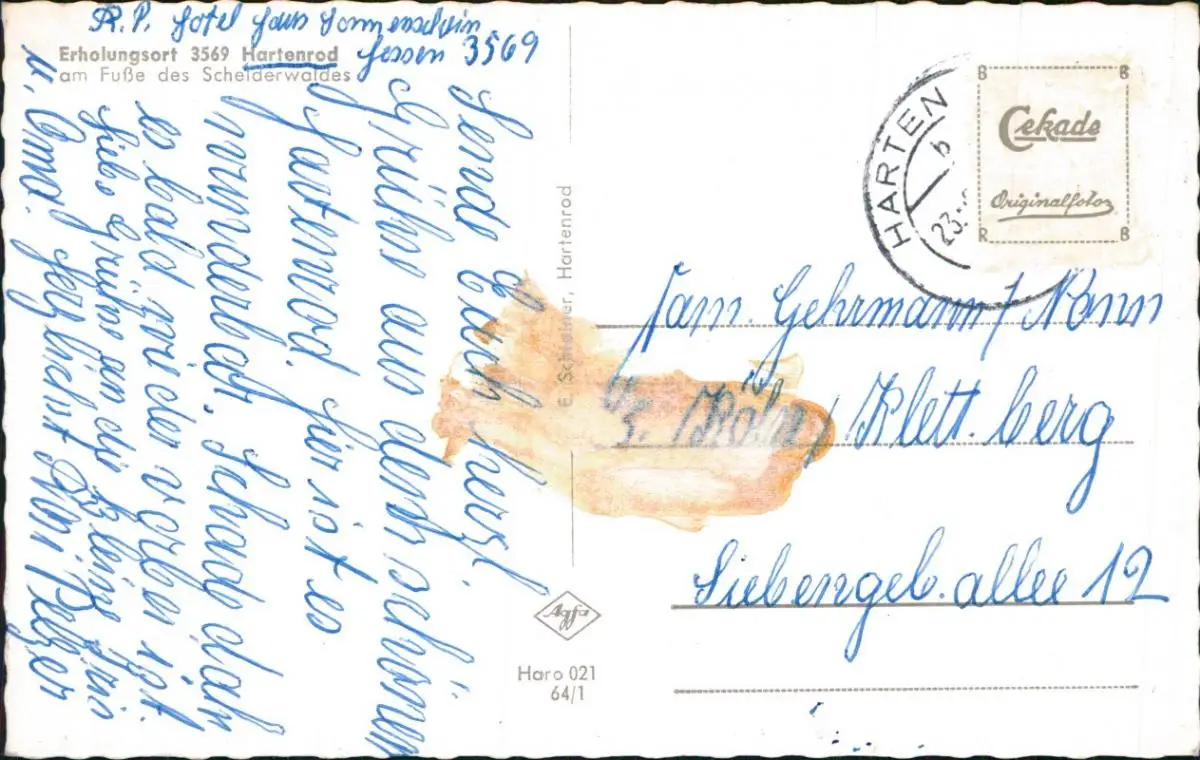 R. P. Hotel Haus Sonnenschein
Hessen 3569
Erholungsort 3569 Hartenrod
am Fuße des Schelderwaldes
Sende Euch herzl.
Grüße aus dem schönen
Hartenrod. Hier ist es
wunderbar. Schade daß
es bald wieder vorbei ist.
Liebe Grüße an die kleine Iris
u. Oma. Herzlichst
E. Schreiner, Hartenrod
Agfa
Haro 021
64/1
HARTEN
b
23.
Cekade
Originalfoto
B B R B
Fam. Gehrmann / Nonn
5. Köln / Klettberg
Siebengeb. allee 12